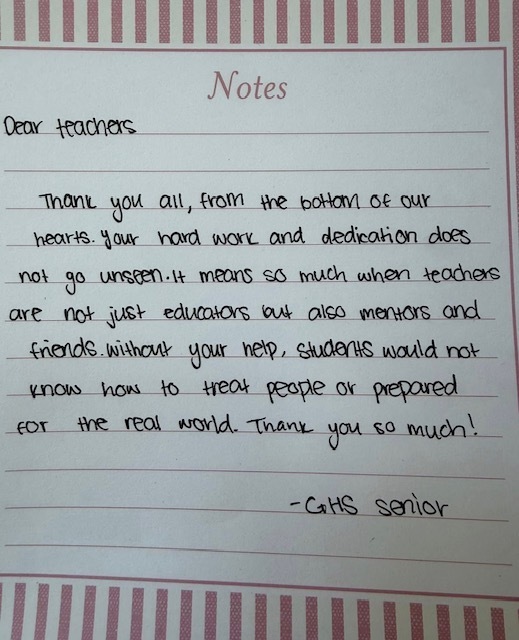 Notes
Dear teachers
Thank you all, from the bottom of our
hearts. Your hard work and dedication does
not go unseen. It means so much when teachers
are not just educators but also mentors and
friends. Without your help, students would not
know how to treat people or prepared
for the real world. Thank you so much!
-GHS senior